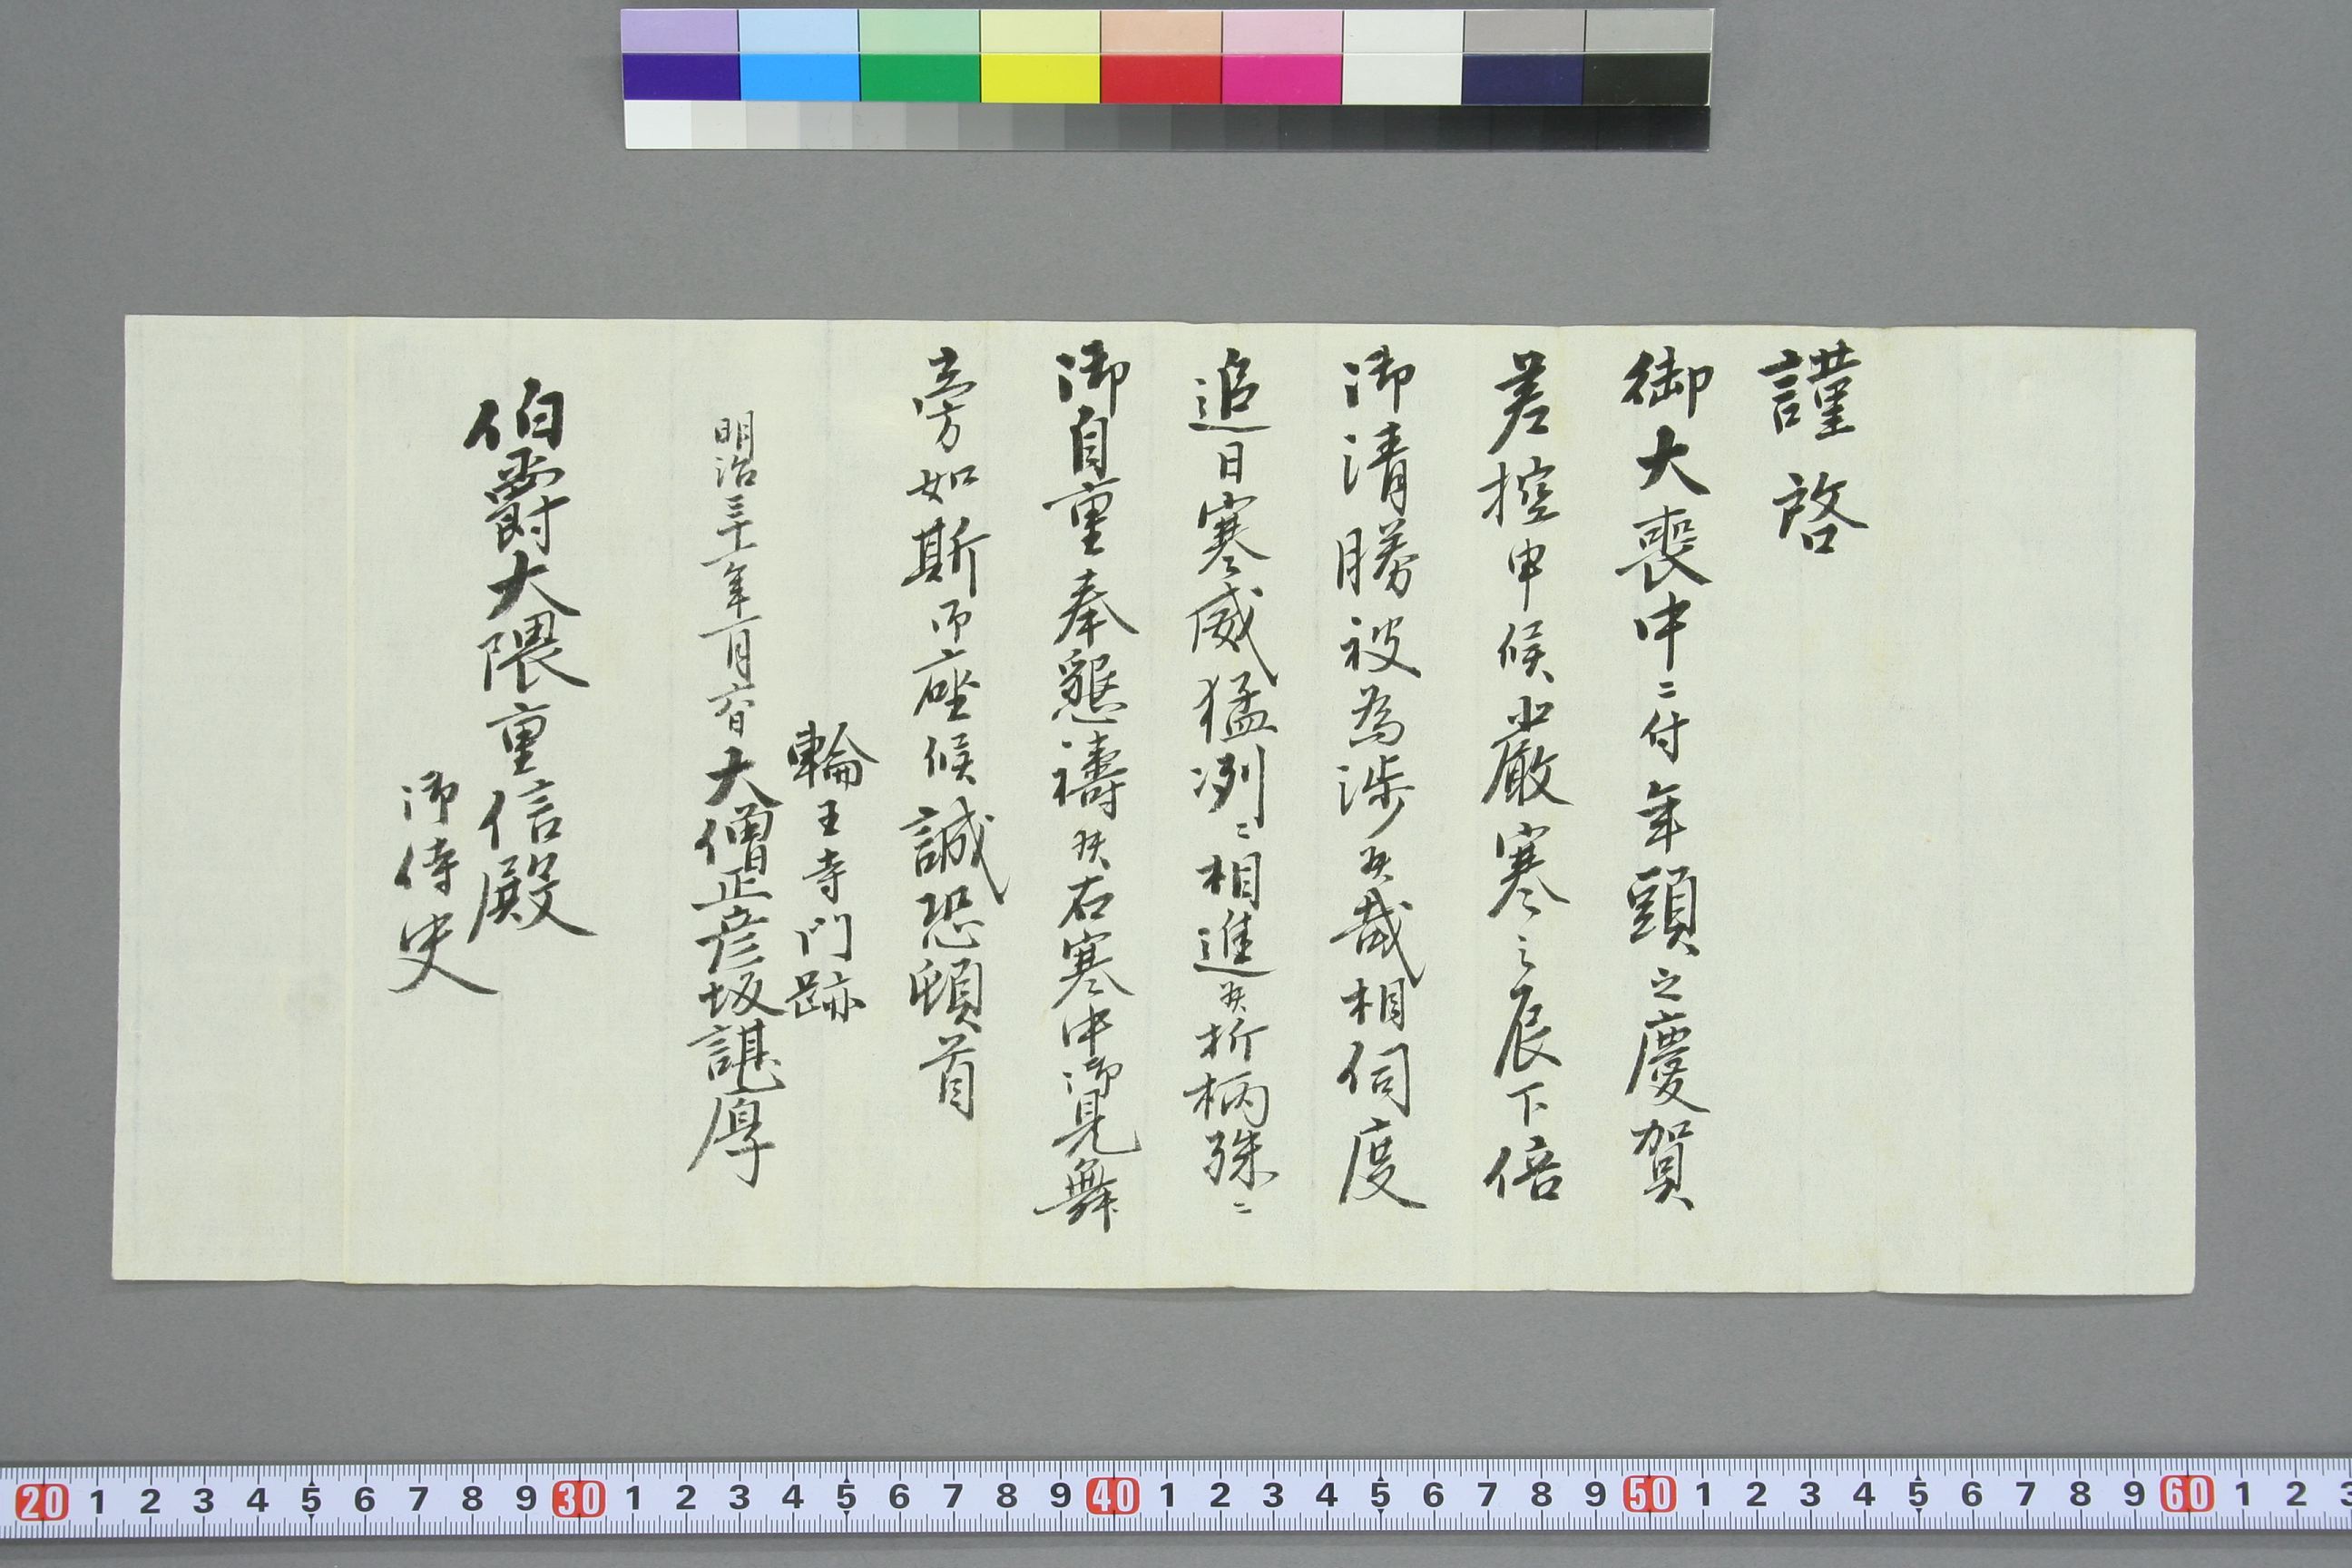 謹啓
御大喪中ニ付年頭之慶賀
差控申候厳寒之辰下倍
御清勝被為渉候哉相伺度
追日寒威猛冽ニ相進候折柄殊ニ
御自重奉懇禱候右寒中御見舞
旁如斯御座候誠恐頓首
輪王寺門跡
明治三十一年一月六日大僧正彦坂諶厚
伯爵大隈重信殿
御侍史
20 1 2 3 4 5 6 7 8 9 30 1 2 3 4 5 6 7 8 9 40 1 2 3 4 5 6 7 8 9 50 1 2 3 4 5 6 7 8 9 60 1 2 3